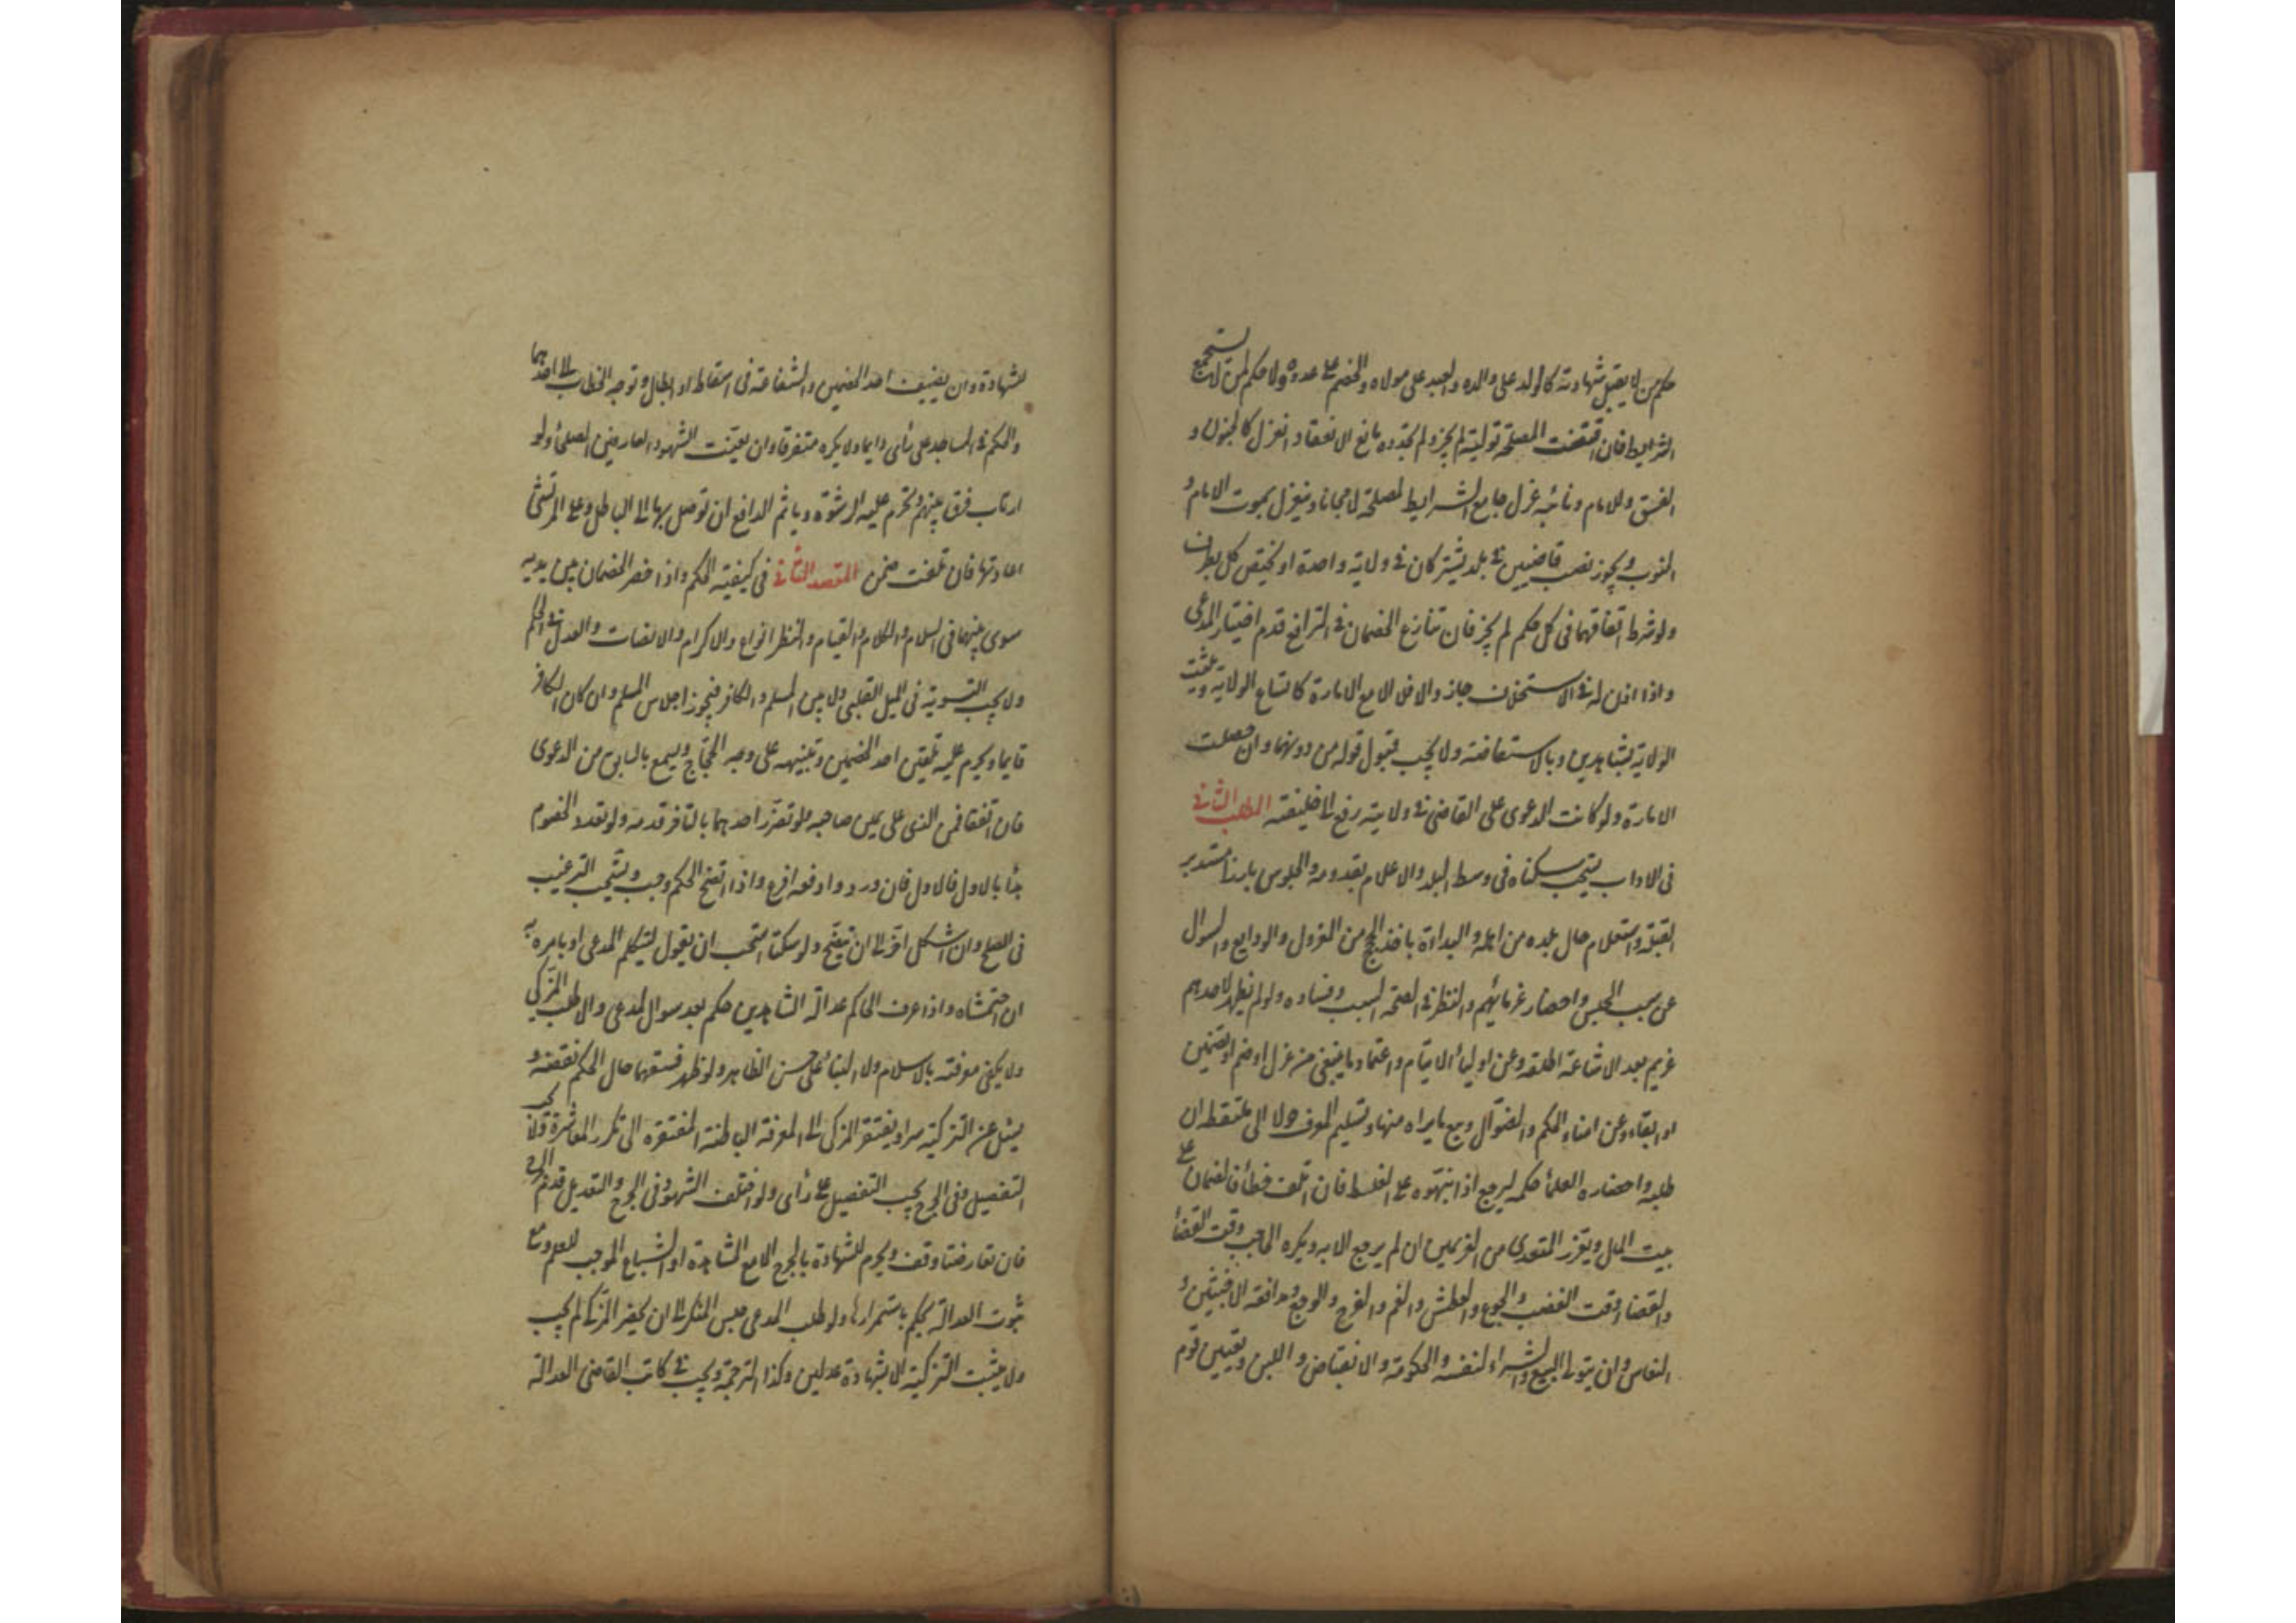 حكم من لا يقبل شهادته كالولد على والده والعبد على مولاه والخصم على عدوه ولا حكم لمن لا يستجمع
الشرايط فان اقتضت المصلحة توليته لم يجز ولو تجدد مانع الانعقاد انعزل كالجنون و
الفسق وللامام ونائبه عزل جامع الشرايط لمصلحة لا مجانا وينعزل بموت الامام و
المنوب ويجوز نصب قاضيين في بلد يشتركان في ولاية واحدة او يختص كل بطرف
ولو شرط اتفاقهما في كل حكم لم يجز فان تنازع الخصمان في الترافع قدم اختيار المدعى
واذا اذن له في الاستخلاف جاز والا فلا الا مع الامارة كاتساع الولاية وتثبت
الولاية بشاهدين وبالاستفاضة ولا يجب قبول قوله من دونهما وان حصلت
الامارة ولو كانت الدعوى على القاضى في ولايته رفع الى خليفته المطلب الثانى
فى الاداب يستحب سكناه فى وسط البلد والاعلام بقدومه والجلوس بارزا مستدبر
القبلة واستعلام حال بلده من اهله والبداءة باخذ الحجج من المعزول والودايع والسوال
عن سبب الحبس واحضار غرمائهم والنظر في صحة السبب وفساده ولو لم يظهر لاحدهم
غريم بعد الاشاعة اطلقه وعن اولياء الايتام واعتماد ما ينبغى من عزل او ضم او تضمين
او ابقاء وعن امناء الحكم والضوال وبيع ما يراه منها وتسليم المعرف حولا الى ملتقطه ان
طلبه واحضاره العلماء حكمه ليرجع اذا نبهوه على الغلط فان اتلف خطأ فالضمان على
بيت المال ويعزر المتعدى من الغريمين ان لم يرجع الا به ويكره الحاجب وقت القضاء
والقضاء وقت الغضب والجوع والعطش والغم والفرح والوجع ومدافعة الاخبثين و
النعاس وان يتولى البيع والشراء لنفسه والحكومة والانقباض واللين وتعيين قوم
للشهادة وان يضيف احد الخصمين والشفاعة فى اسقاط او ابطال وتوجه الخطاب الى احدهما
والحكم في المساجد على رأى دايما ولا يكره متفرقا وان يعنت الشهود العارفين الصلحاء ولو
ارتاب فرق بينهم وتحرم عليه الرشوة وياثم الدافع ان توصل بها الى الباطل وعلى المرتشى
اعادتها فان تلفت ضمن المقصد الثانى فى كيفية الحكم واذا حضر الخصمان بين يديه
سوى بينهما فى السلام والكلام والقيام والنظر وانواع الاكرام والانصات والعدل في الحكم
ولا يجب التسوية فى الميل القلبى ولا بين المسلم والكافر فيجوز اجلاس المسلم وان كان الكافر
قايما ويحرم عليه تلقين احد الخصمين وتنبيهه على وجه الحجاج ويسمع بالسابق من الدعوى
فان اتفقا فمن الذى على يمين صاحبه ولو تضرر احدهما بالتاخر قدمه ولو تعدد الخصوم
بدأ بالاول فالاول فان وردوا دفعة اقرع واذا اتضح الحكم وجب ويستحب الترغيب
فى الصلح وان اشكل اخر الى ان يتضح ولو سكتا استحب ان يقول ليتكلم المدعى او يامره به
ان احتشماه واذا عرف الحاكم عدالة الشاهدين حكم بعد سوال المدعى والا طلب المزكى
ولا يكفى معرفته بالاسلام ولا البناء على حسن الظاهر ولو ظهر فسقهما حال الحكم نقضه و
يسئل عن التزكية سرا ويفتقر المزكى الى المعرفة الباطنة المفتقرة الى تكرر المعاشرة ولا يجب
التفصيل وفى الجرح يجب التفصيل على رأى ولو اختلف الشهود فى الجرح والتعديل قدم الجرح
فان تعارضتا وقف ويحرم الشهادة بالجرح الا مع المشاهدة او الشياع الموجب للعلم ومع
ثبوت العدالة يحكم باستمرارها ولو طلب المدعى حبس المنكر الى ان يحضر المزكى لم يجب
ولا يثبت التزكية الا بشهادة عدلين وكذا الترجمة ويجب في كاتب القاضى العدالة